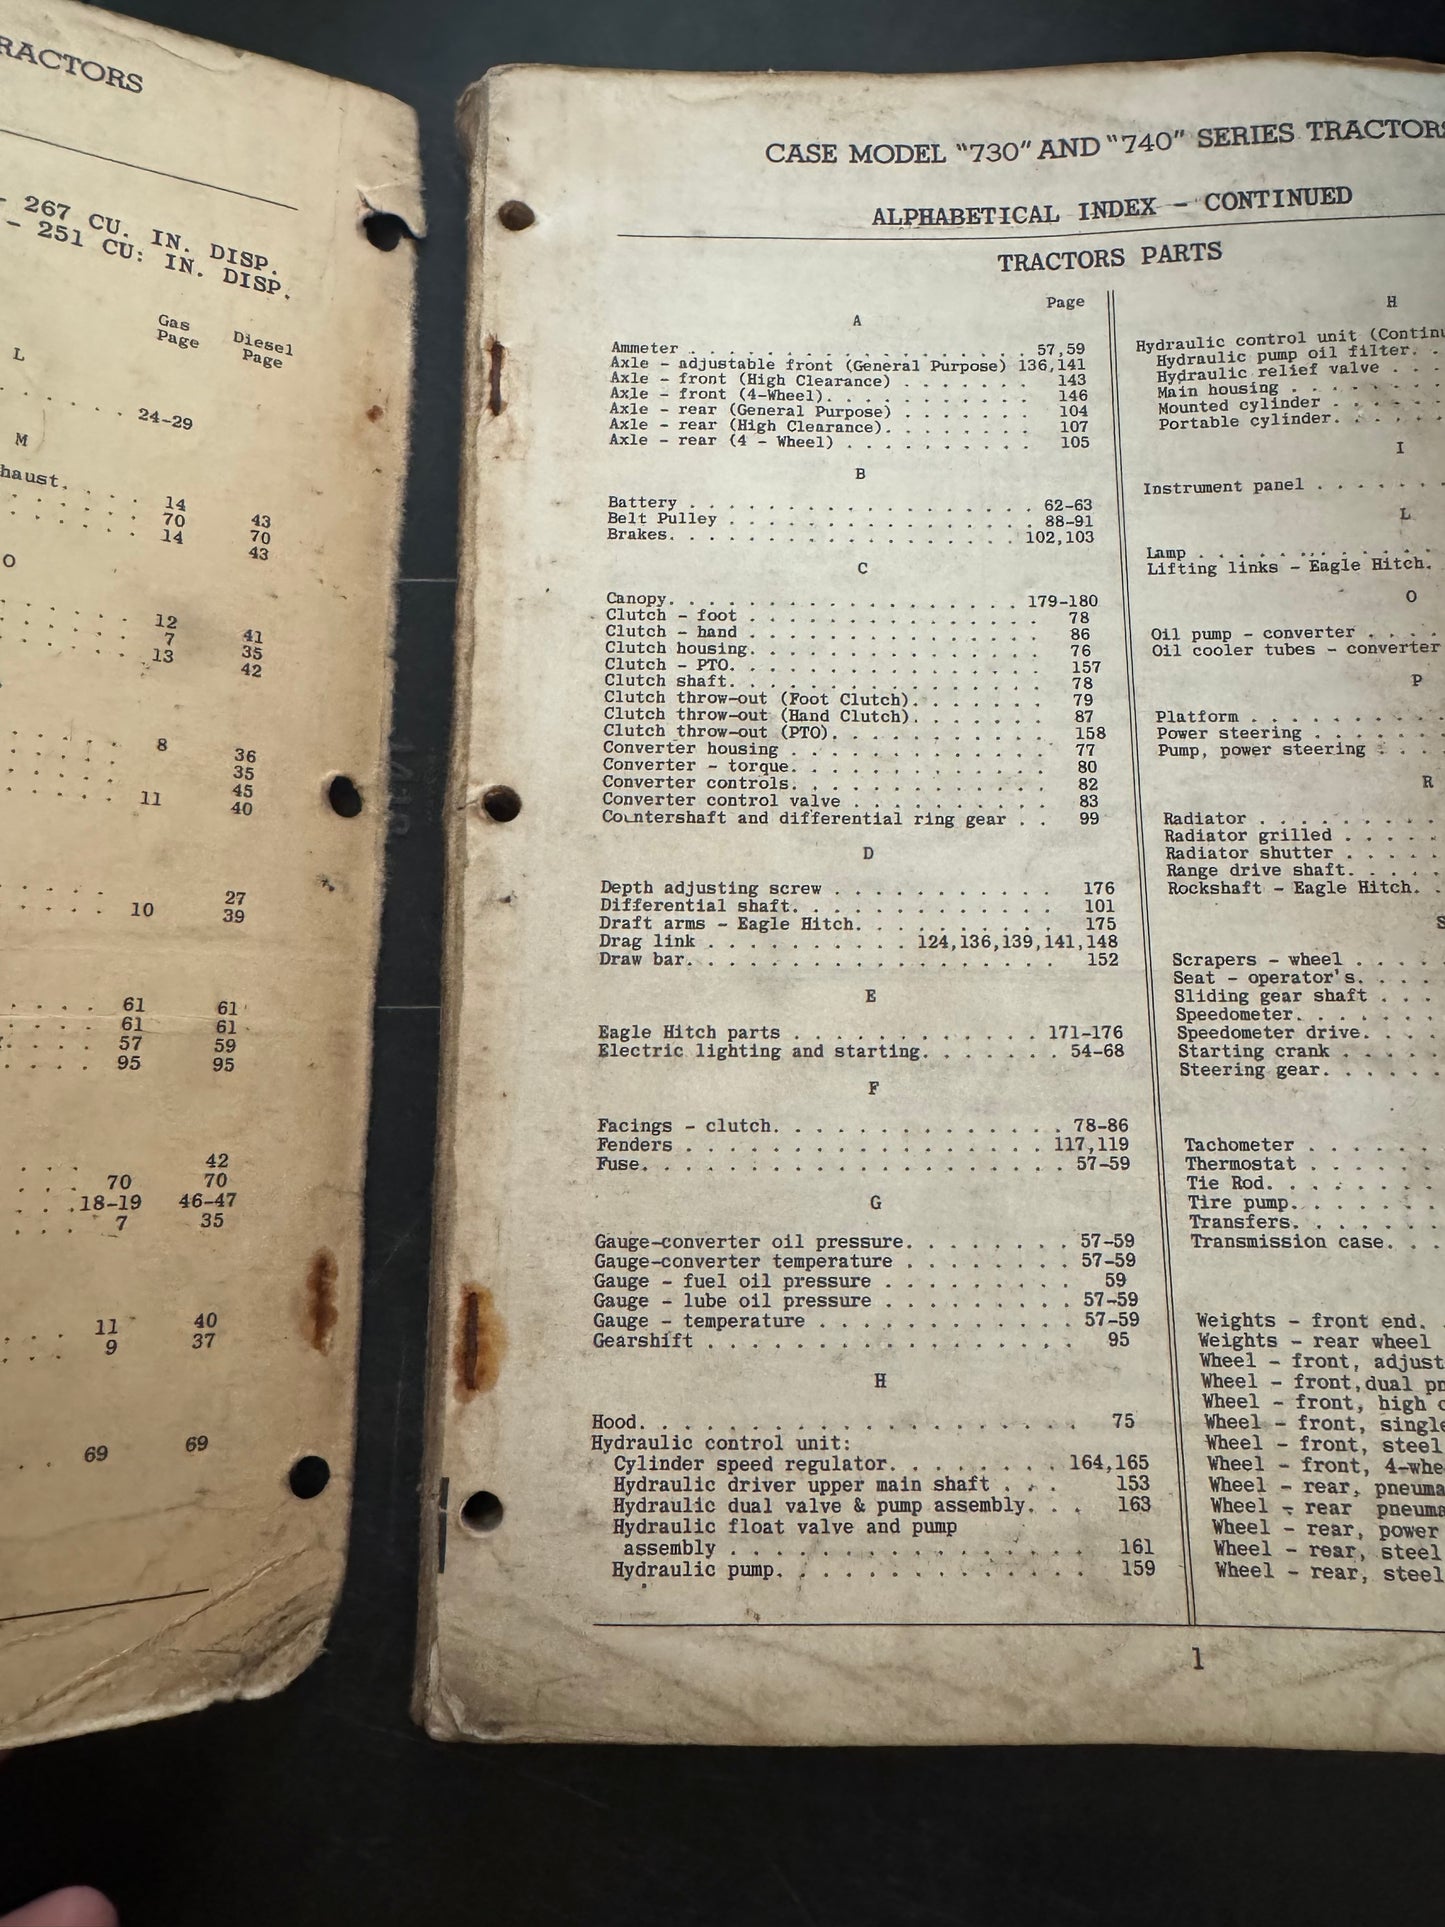 RACTORS
- 267 CU. IN. DISP.
- 251 CU: IN. DISP.
Gas Page Diesel Page
L
. . . . . 24-29
M
haust. . . . . 14
70 43
14 70
43
O
12
7 41
13 35
42
8
36
35
45
11 40
27
10 39
61 61
61 61
57 59
95 95
42
70 70
18-19 46-47
7 35
11 40
9 37
69 69
CASE MODEL "730" AND "740" SERIES TRACTORS
ALPHABETICAL INDEX - CONTINUED
TRACTORS PARTS
Page
A
Ammeter . . . . . . . . . . . . . . . . . . 57,59
Axle - adjustable front (General Purpose) 136,141
Axle - front (High Clearance) . . . . . . . 143
Axle - front (4-Wheel). . . . . . . . . . . 146
Axle - rear (General Purpose) . . . . . . . 104
Axle - rear (High Clearance). . . . . . . . 107
Axle - rear (4 - Wheel) . . . . . . . . . . 105
B
Battery . . . . . . . . . . . . . . . . . . 62-63
Belt Pulley . . . . . . . . . . . . . . . . 88-91
Brakes. . . . . . . . . . . . . . . . . . 102,103
C
Canopy. . . . . . . . . . . . . . . . . . 179-180
Clutch - foot . . . . . . . . . . . . . . . 78
Clutch - hand . . . . . . . . . . . . . . . 86
Clutch housing. . . . . . . . . . . . . . . 76
Clutch - PTO. . . . . . . . . . . . . . . . 157
Clutch shaft. . . . . . . . . . . . . . . . 78
Clutch throw-out (Foot Clutch). . . . . . . 79
Clutch throw-out (Hand Clutch). . . . . . . 87
Clutch throw-out (PTO). . . . . . . . . . . 158
Converter housing . . . . . . . . . . . . . 77
Converter - torque. . . . . . . . . . . . . 80
Converter controls. . . . . . . . . . . . . 82
Converter control valve . . . . . . . . . . 83
Countershaft and differential ring gear . . 99
D
Depth adjusting screw . . . . . . . . . . . 176
Differential shaft. . . . . . . . . . . . . 101
Draft arms - Eagle Hitch. . . . . . . . . . 175
Drag link . . . . . . . . . . 124,136,139,141,148
Draw bar. . . . . . . . . . . . . . . . . . 152
E
Eagle Hitch parts . . . . . . . . . . . . 171-176
Electric lighting and starting. . . . . . . 54-68
F
Facings - clutch. . . . . . . . . . . . . . 78-86
Fenders . . . . . . . . . . . . . . . . . 117,119
Fuse. . . . . . . . . . . . . . . . . . . . 57-59
G
Gauge-converter oil pressure. . . . . . . . 57-59
Gauge-converter temperature . . . . . . . . 57-59
Gauge - fuel oil pressure . . . . . . . . . 59
Gauge - lube oil pressure . . . . . . . . . 57-59
Gauge - temperature . . . . . . . . . . . . 57-59
Gearshift . . . . . . . . . . . . . . . . . 95
H
Hood. . . . . . . . . . . . . . . . . . . . 75
Hydraulic control unit:
Cylinder speed regulator. . . . . . . . 164,165
Hydraulic driver upper main shaft . . . 153
Hydraulic dual valve & pump assembly. . . 163
Hydraulic float valve and pump
assembly . . . . . . . . . . . . . . . . 161
Hydraulic pump. . . . . . . . . . . . . . 159
H
Hydraulic control unit (Continu
Hydraulic pump oil filter. .
Hydraulic relief valve . . .
Main housing . . . . . . . .
Mounted cylinder . . . . . .
Portable cylinder. . . . . .
I
Instrument panel . . . . . . .
L
Lamp . . . . . . . . . . . . .
Lifting links - Eagle Hitch.
O
Oil pump - converter . . . .
Oil cooler tubes - converter
P
Platform . . . . . . . . . .
Power steering . . . . . . .
Pump, power steering . . . .
R
Radiator . . . . . . . . . .
Radiator grilled . . . . . .
Radiator shutter . . . . . .
Range drive shaft. . . . . .
Rockshaft - Eagle Hitch. .
S
Scrapers - wheel . . . . .
Seat - operator's. . . . .
Sliding gear shaft . . . .
Speedometer. . . . . . . .
Speedometer drive. . . . .
Starting crank . . . . . .
Steering gear. . . . . . .
Tachometer . . . . . . . .
Thermostat . . . . . . . .
Tie Rod. . . . . . . . . .
Tire pump. . . . . . . . .
Transfers. . . . . . . . .
Transmission case. . . . .
Weights - front end. .
Weights - rear wheel
Wheel - front, adjust
Wheel - front, dual pn
Wheel - front, high c
Wheel - front, single
Wheel - front, steel
Wheel - front, 4-whe
Wheel - rear, pneuma
Wheel - rear pneuma
Wheel - rear, power
Wheel - rear, steel
Wheel - rear, steel
1